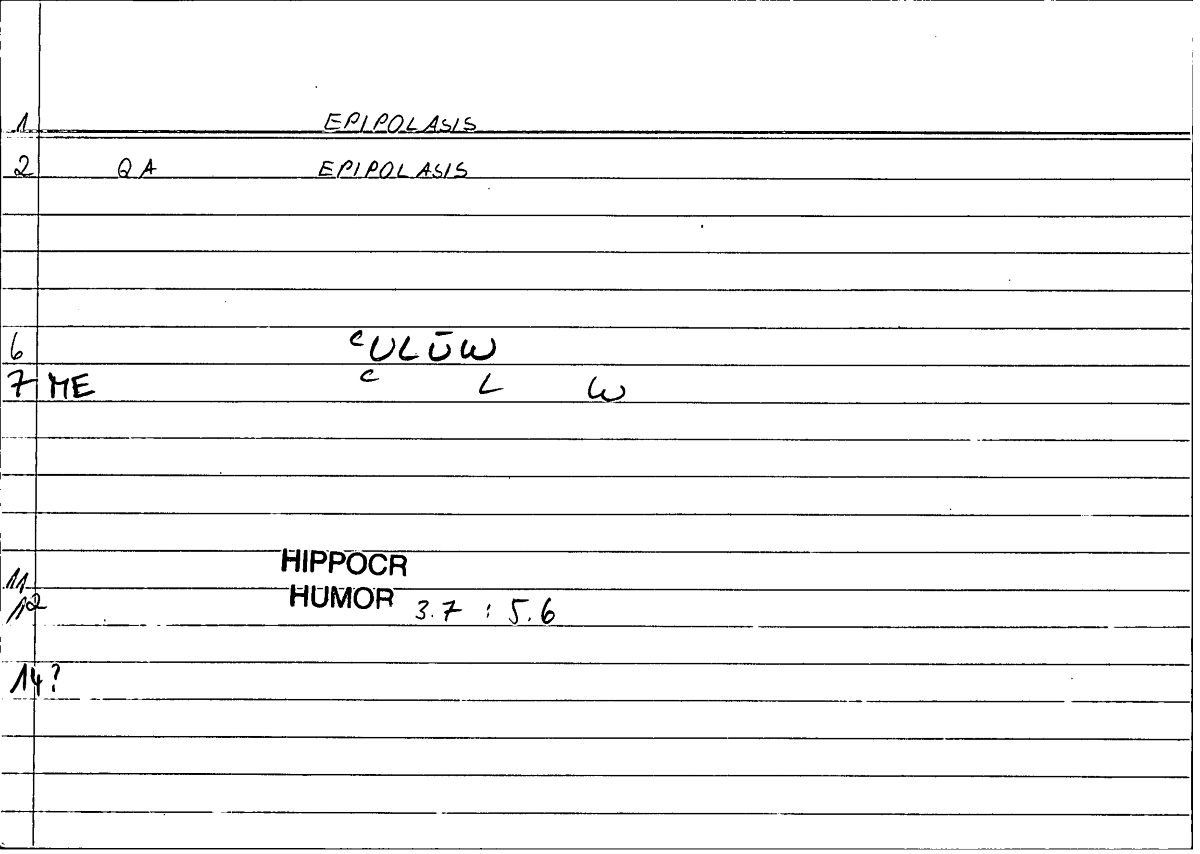 1 EPIPOLASIS
2 QA EPIPOLASIS
6 ᶜULŪW
7 ME ᶜ L W
11 HIPPOCR
12 HUMOR 3.7 : 5.6
14?